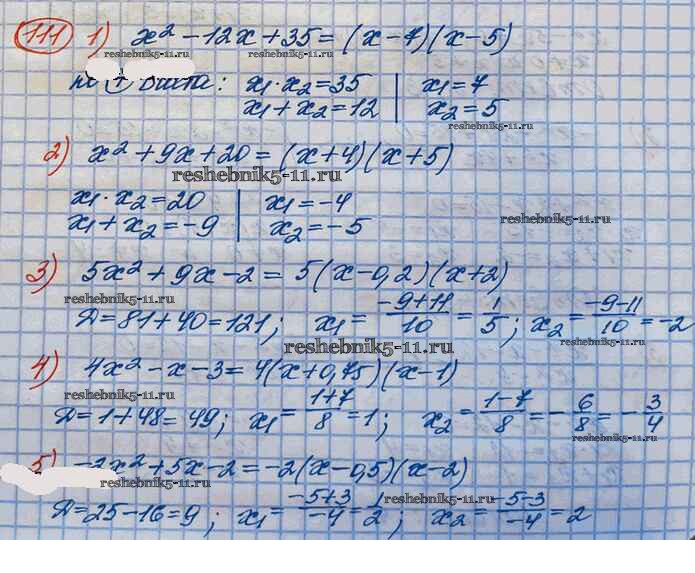 111 1) x² - 12x + 35 = (x - 7)(x - 5)
reshebnik5-11.ru reshebnik5-11.ru
x₁ · x₂ = 35 | x₁ = 7
x₁ + x₂ = 12 | x₂ = 5
reshebnik5-11.ru
2) x² + 9x + 20 = (x + 4)(x + 5)
reshebnik5-11.ru
x₁ · x₂ = 20 | x₁ = -4
x₁ + x₂ = -9 | x₂ = -5
reshebnik5-11.ru
3) 5x² + 9x - 2 = 5(x - 0,2)(x + 2)
reshebnik5-11.ru reshebnik5-11.ru
Д = 81 + 40 = 121; x₁ = (-9+11)/10 = 1/5; x₂ = (-9-11)/10 = -2
reshebnik5-11.ru reshebnik5-11.ru
4) 4x² - x - 3 = 4(x + 0,75)(x - 1)
Д = 1 + 48 = 49; x₁ = (1+7)/8 = 1; x₂ = (1-7)/8 = -6/8 = -3/4
reshebnik5-11.ru
5) -2x² + 5x - 2 = -2(x - 0,5)(x - 2)
reshebnik5-11.ru reshebnik5-11.ru
Д = 25 - 16 = 9; x₁ = (-5+3)/-4 = 1/2; x₂ = (-5-3)/-4 = 2